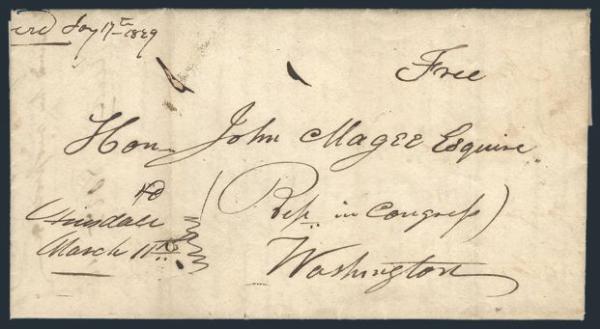 Jany 17th 1829
Free
Hon John Magee Esquire
(Rep. in Congress)
Washington
Hinsdale
March 11th